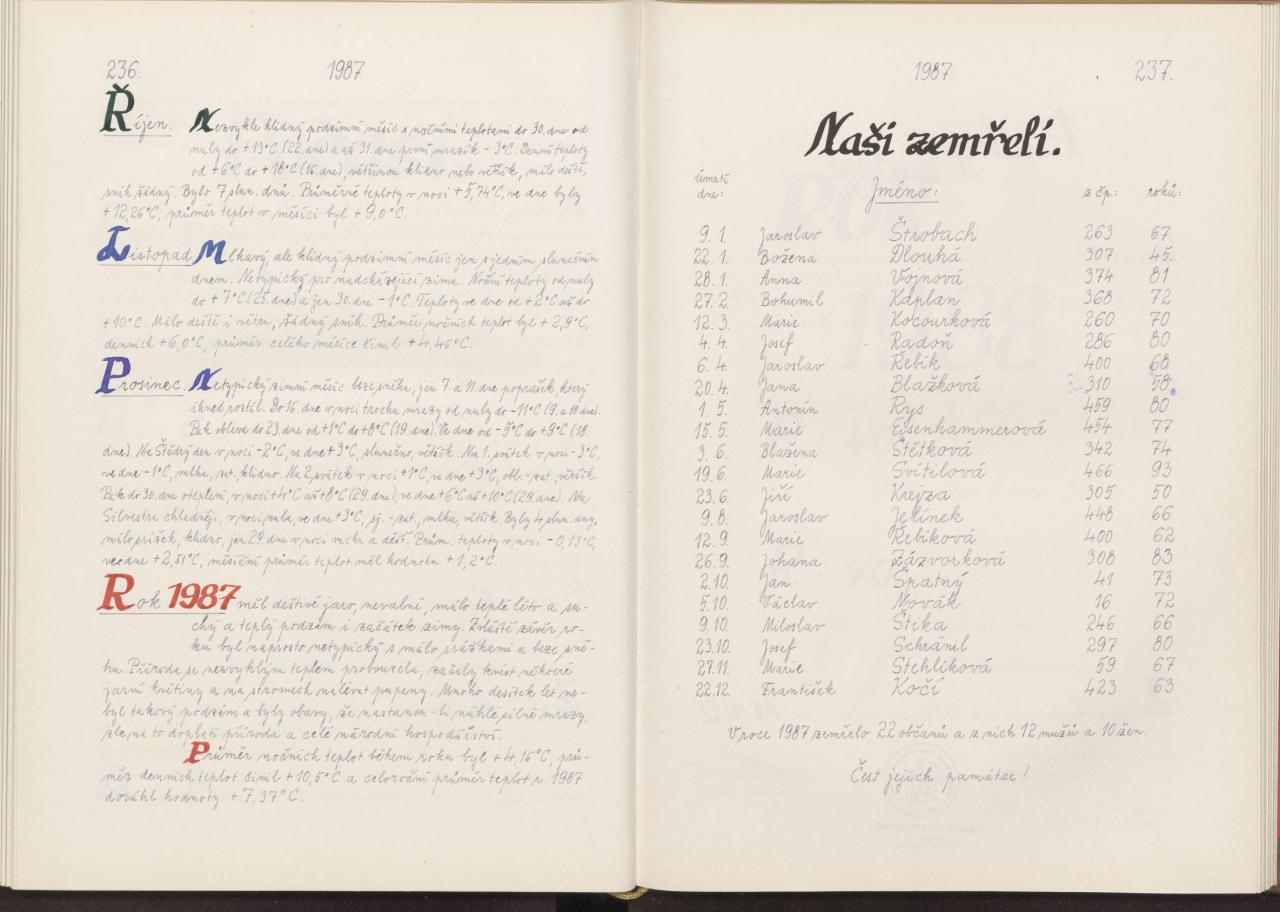 236. 1987
Říjen. Nezvykle klidný podzimní měsíc s nočními teplotami do 30. dne od
nuly do +13°C (22. dne) a až 31. dne první mrazík -3°C. Denní teploty
od +6°C do +18°C (16. dne), většinou klidno nebo větřík, málo deště,
sníh žádný. Bylo 7 slun. dnů. Průměrné teploty v noci +5,74°C, ve dne byly
+12,26°C, průměr teplot v měsíci byl +9,0°C.
Listopad Mlhavý, ale klidný podzimní měsíc jen s jedním slunečním
dnem. Netypický pro nadcházející zimu. Noční teploty od nuly
do +7°C (25. dne) a jen 30. dne -1°C. Teploty ve dne od +2°C až do
+10°C. Málo deště i větru, žádný sníh. Průměr nočních teplot byl +2,9°C,
denních +6,0°C, průměr celého měsíce činil +4,46°C.
Prosinec. Netypický zimní měsíc beze sněhu, jen 7. a 11. dne poprašek, který
ihned roztál. Do 16. dne v noci trochu mrazy od nuly do -11°C (9. a 10 dne).
Pak obleva do 23. dne od +1°C do +8°C (19. dne). Ve dne od -5°C do +9°C (18.
dne). Na Štědrý den v noci -2°C, ve dne +3°C, slunečno, větřík. Na 1. svátek v noci -3°C,
ve dne -1°C, mlha, zat., klidno. Na 2. svátek v noci +1°C, ve dne +3°C, obl. - zat., větřík.
Pak do 30. dne oteplení, v noci +4°C až +8°C (29. dne), ve dne +6°C až +10°C (29. dne). Na
Silvestra chladněji, v noci nula, ve dne +3°C, sj. - zat., mlha, větřík. Byly 4 slun. dny,
málo srážek, klidno, jen 29. dne v noci vichr a déšť. Prům. teploty v noci -0,13°C,
ve dne +2,51°C, měsíční průměr teplot měl hodnotu +1,2°C.
Rok 1987 měl deštivé jaro, nevalné, málo teplé léto a su-
chý a teplý podzim i začátek zimy. Zvláště závěr ro-
ku byl naprosto netypický s málo srážkami a beze sně-
hu. Příroda se nezvyklým teplem probouzela, začaly kvést některé
jarní květiny a na stromech nalévat pupeny. Mnoho desítek let ne-
byl takový podzim a byly obavy, že nastanou-li náhlé silné mrazy,
zle na to doplatí příroda a celé národní hospodářství.
Průměr nočních teplot během roku byl +4,16°C, prů-
měr denních teplot činil +10,5°C a celoroční průměr teplot r. 1987
dosáhl hodnoty +7,37°C.
1987 237.
Naši zemřelí.
úmrtí
dne: Jméno: z čp.: roků:
9. 1. Jaroslav Štrobach 263 67
22. 1. Božena Dlouhá 307 45
28. 1. Anna Vojnová 374 81
27. 2. Bohumil Kaplan 368 72
12. 3. Marie Kocourková 260 70
4. 4. Josef Radoň 286 80
6. 4. Jaroslav Řebík 400 68
20. 4. Jana Blažková 310 58
1. 5. Antonín Rys 459 80
15. 5. Marie Eisenhammerová 454 77
3. 6. Blažena Štětková 342 74
19. 6. Marie Svítilová 466 93
23. 6. Jiří Krejza 305 50
9. 8. Jaroslav Jelínek 448 66
12. 9. Marie Řebíková 400 62
26. 9. Johana Zázvorková 308 83
2. 10. Jan Špatný 41 73
5. 10. Václav Novák 16 72
9. 10. Miloslav Štika 246 66
23. 10. Josef Schránil 297 80
27. 11. Marie Stehlíková 59 67
22. 12. František Kočí 423 63
V roce 1987 zemřelo 22 občanů a z nich 12 mužů a 10 žen.
Čest jejich památce!